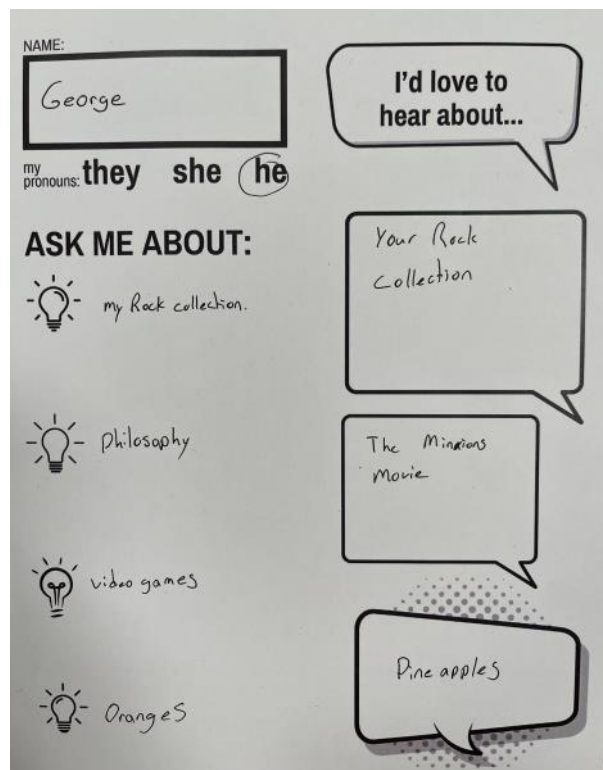 NAME:
George
my pronouns: they she he
ASK ME ABOUT:
my Rock collection.
Philosophy
video games
Oranges
I'd love to
hear about...
Your Rock
Collection
The Minions
Movie
Pineapples